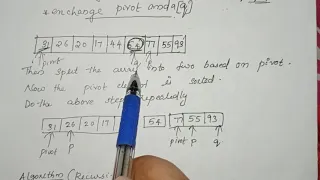 * exchange pivot and a[q]
31 26 20 17 44 54 77 55 93
pivot q
Then split the array into two based on pivot.
Now the pivot element is sorted.
Do the above steps repeatedly
31 26 20 17 54 77 55 93
pivot P pivot P q
Algorithm (Recursi